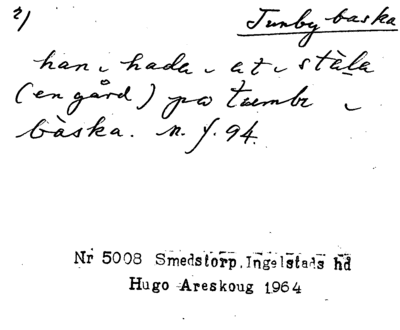 2) Tumbybaska
han hada at stäla
(en gård) på tumbi
bàska. n. f. 94.
Nr 5008 Smedstorp, Ingelstads hd
Hugo Areskoug 1964